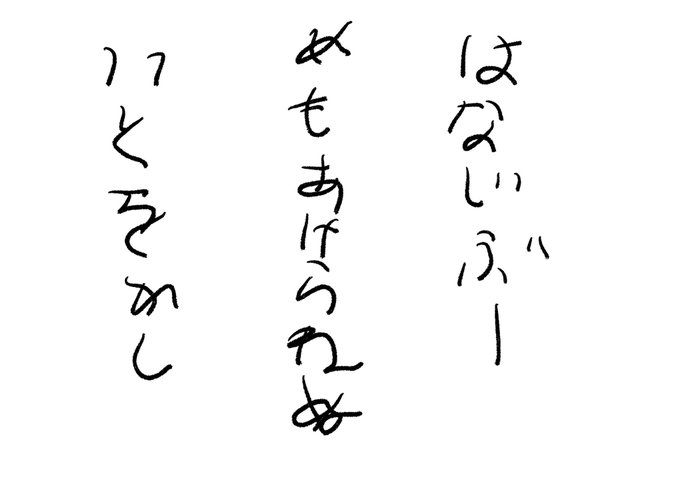 はないぶー
めもあげられぬ
いとをかし